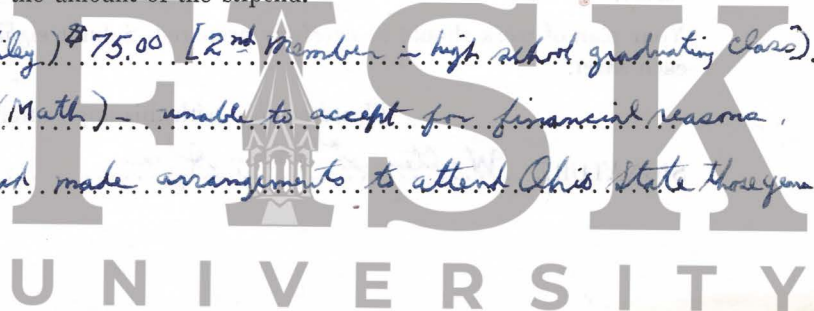 the amount of the stipend.
iley) $75.00 [2nd Member in high school graduating class).
(Math) - unable to accept for financial reasons.
ad made arrangements to attend Ohio State those
FISK
UNIVERSITY